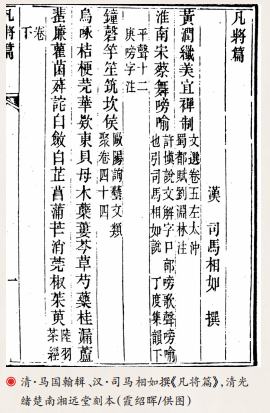 凡將篇
漢 司馬相如 撰
黃潤纖美宜禪制 文選卷五左太沖
蜀都賦劉淵林注
淮南宋蔡舞嗙喻 許慎說文解字口部嗙歌聲嗙喻
也引司馬相如說 丁度集韻下
平聲十二
庚嗙字注
鐘磬竽笙筑坎侯 歐陽詢藝文類
聚卷四十四
烏喙桔梗芫華款東貝母木蘗蔞芩草芍藥桂漏蘆
蜚廉雚菌荈詫白斂白芷菖蒲芒消莞椒茱萸 陸羽
茶經
卷
下
凡將篇
一
清·马国翰辑、汉·司马相如撰《凡将篇》,清光
绪楚南湘远堂刻本(霞绍晖/供图)